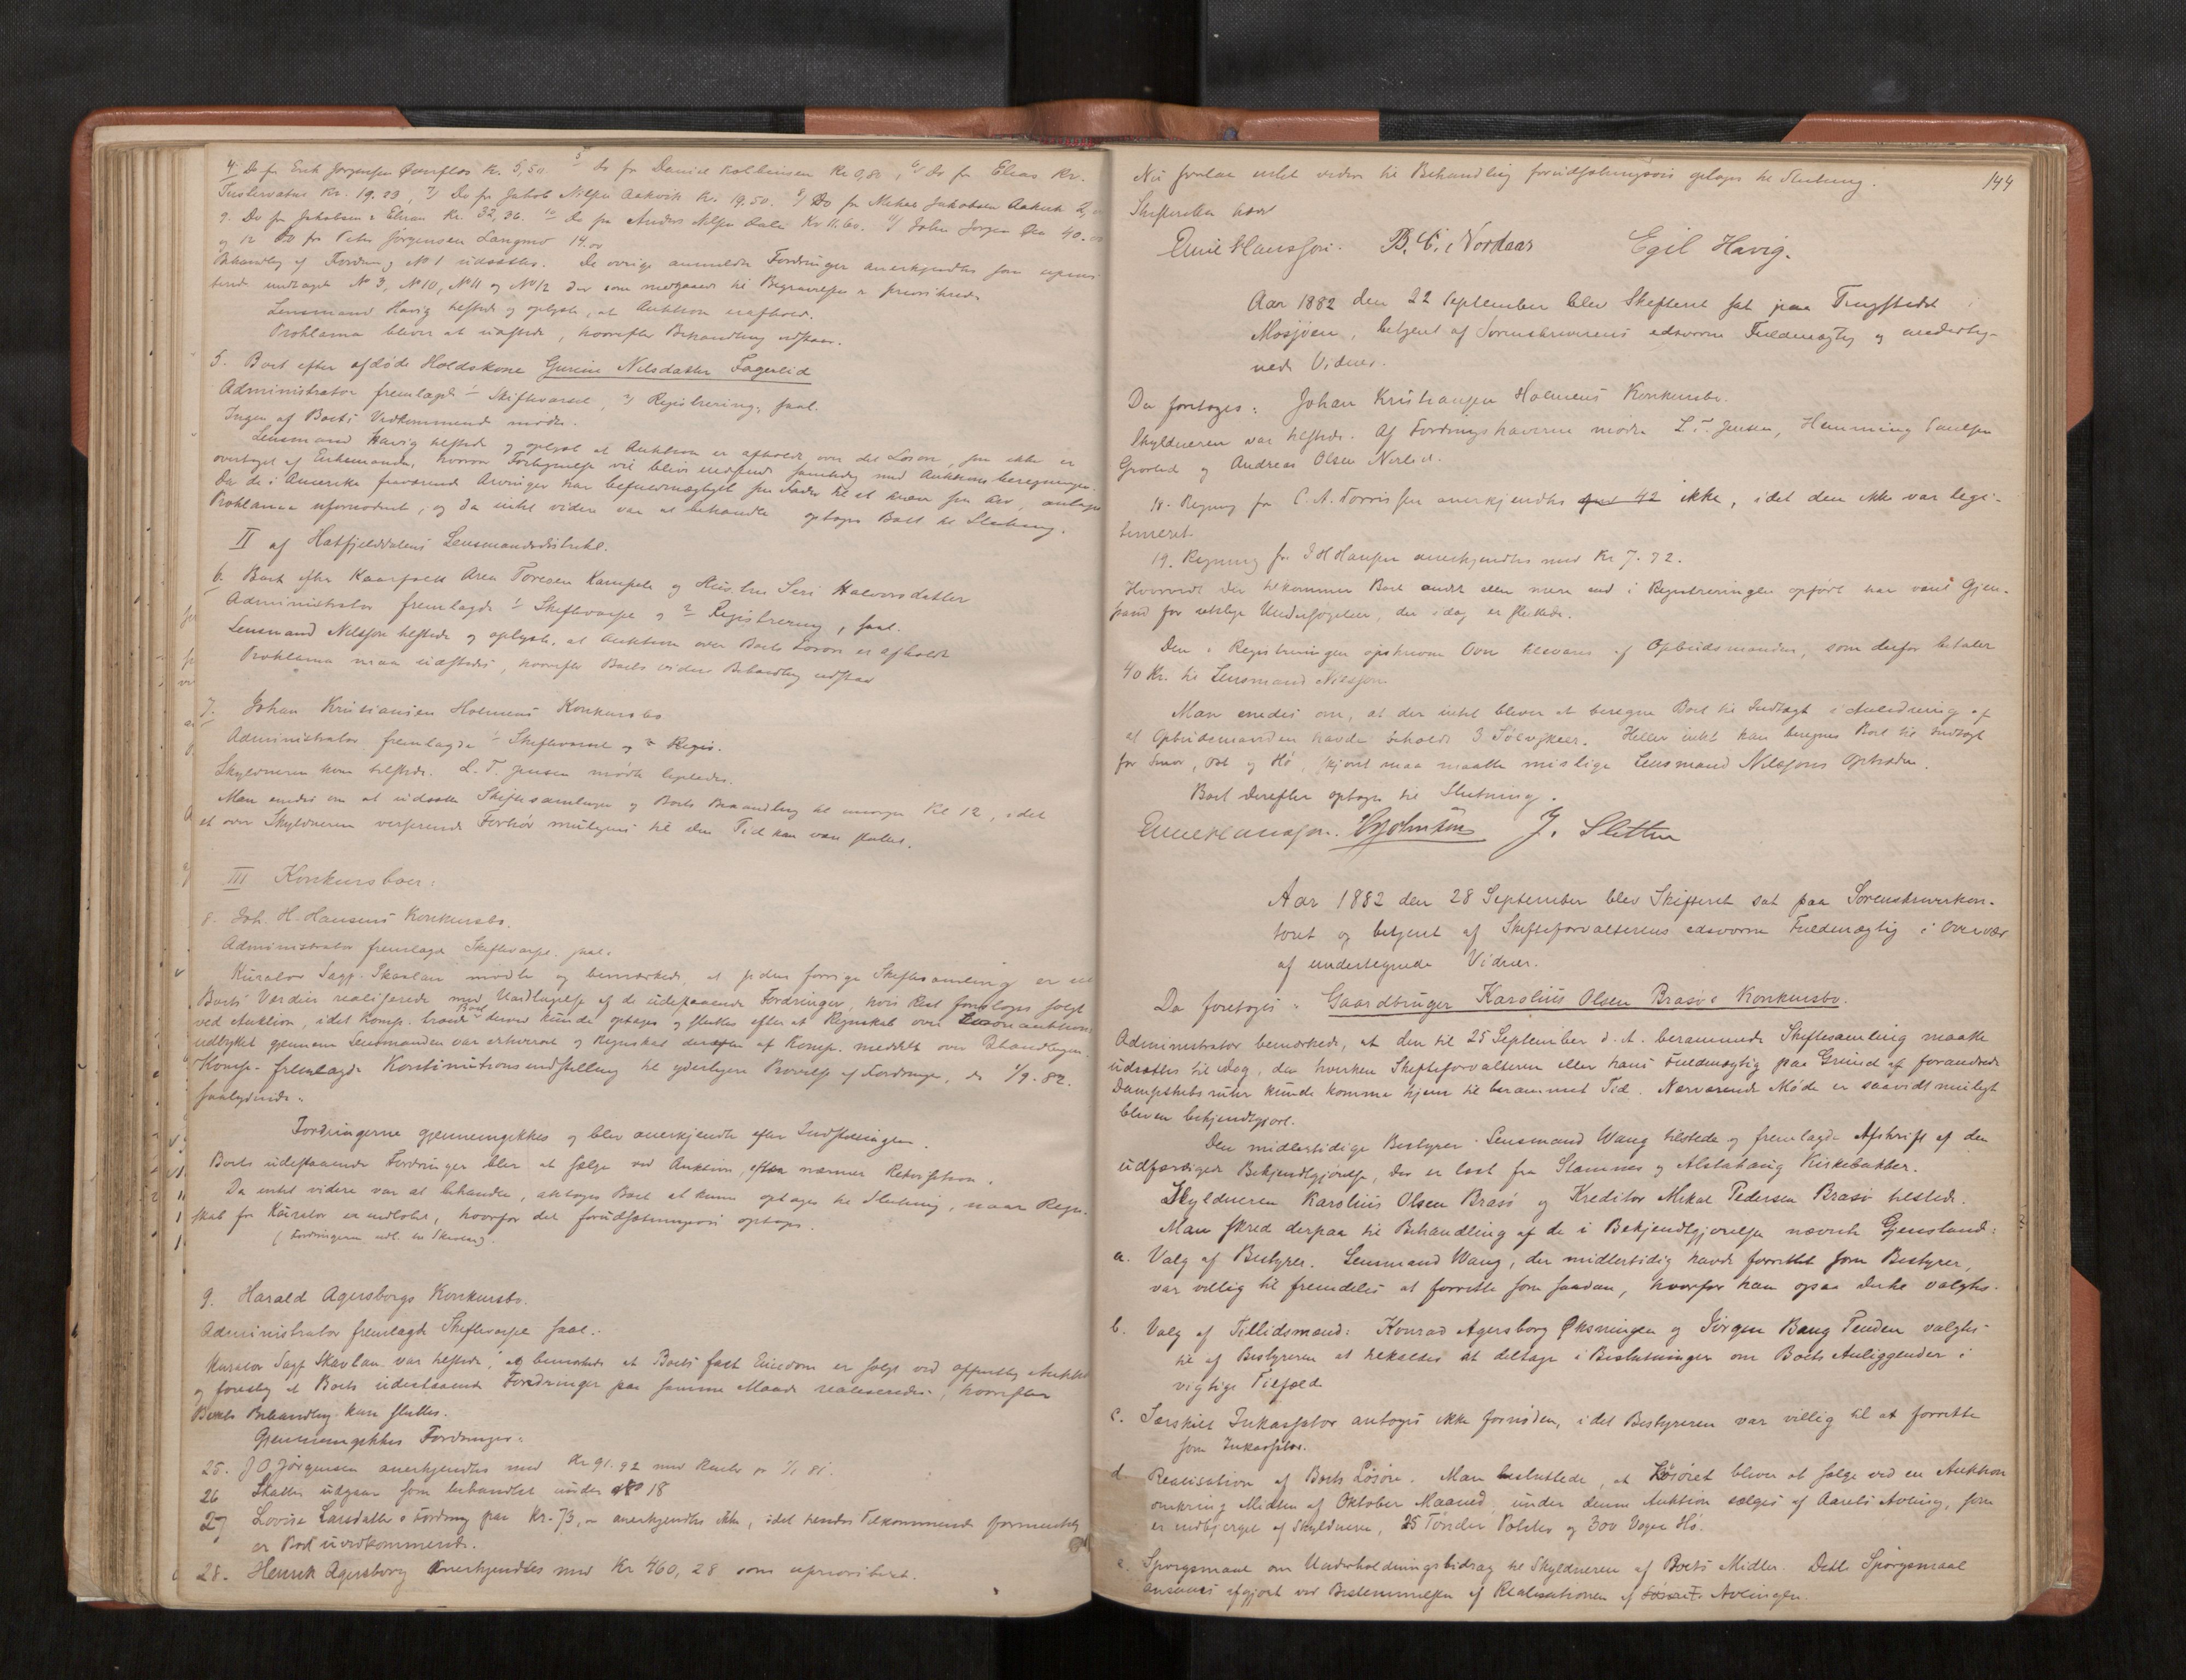 4. Do fra Erik Jørgensen Kr. 5,50 5 do fra Daniel Kr 0,80, 6) do fra Elias Kr.
Kr. 19.23, 7) Do fra Jakob Nilsen Aakvik Kr. 19.50. 8) Do fra Mikal Jakobsen Aakvik
9. Do fra Jakobsen & Kr. 32,36. 10 do fra Anders Nilsen Kr 11.60. 11) Johan Jørgen 40.
og 12 Do fra Peter Jørgensen Langmo 14.00
Behandling af Fordring No 1 udsattes. De øvrige anmeldte Fordringer anerkjendtes som
undtagen No 3, No 10, No 11 og No 12 der som medgaaede til Begravelsen er prioriterede
Lensmand Havig tilstede og oplyste, at Auktion er afholdt.
Proklama bliver at udstede, hvorefter Behandling udstaar.
5. Boet efter afdøde Holdskone Gurine Nilsdatter Fagerlid
Administrator fremlagde 1 Skiftevarsel, 2) Registrering, saal.
Ingen af Boets Vedkommende mødte.
Lensmand Havig tilstede og oplyste at Auktion er afholdt over det Løsøre, som ikke er
overtaget af Enkemanden, hvorom Fortegnelse vil blive indsendt samtidig med Auktionsberegningen.
Da de i Amerika fraværende Arvinger har befuldmægtiget sin Fader til at kræve sin Arv, antages
Proklama ufornødent, og da intet videre var at behandle optages Boet til Slutning.
II af Hatfjelddalens Lensmandsdistrikt.
6. Boet efter Kaarfolk Aren Toresen og Hustru Siri Halvorsdatter
Administrator fremlagde 1 Skiftevarsel og 2 Registrering, saal.
Lensmand Nilsson tilstede og oplyste, at Auktion over Boets Løsøre er afholdt
Proklama maa udstedes, hvorefter Boets videre Behandling udstaar
7. Johan Kristiansen Holmens Konkursbo
Administrator fremlagde 1 Skiftevarsel og 2 Regis.
Skyldneren kom tilstede. L. T. Jensen mødte ligeledes.
Man enedes om at udsætte Skiftesamlingen og Boets Behandling til imorgen Kl 12, idet
et over Skyldneren verserende Forhør muligens til den Tid kan være sluttet.
III Konkursboer:
8. Joh. H. Hansens Konkursbo.
Administrator fremlagde Skiftevarsel, saal.
Kurator Sagf. Skavlan mødte og bemærkede, at siden forrige Skiftesamling er alle
Boets Værdier realiserede med Undtagelse af de udestaaende Fordringer, hvis Rest foresloges solgt
ved Auktion, idet Komp. troede Boet derved kunde optages og sluttes efter at Regnskab over Løsøreauktion
udbyttet gjennem Lensmanden var erhvervet og Regnskab derefter af Komp. meddelt over Behandlingen.
Komp. fremlagde Kontinuationsindstilling til yderligere Prøvelse af Fordringer, dt 1/9-82.
saalydende:
Fordringerne gjennemgikkes og blev anerkjendte efter Indstillingen.
Boets udestaaende Fordringer blev at sælge ved Auktion, efter nærmere Rekvisition.
Da intet videre var at behandle, antoges Boet at kunne optages til Slutning, naar Regn-
skab fra Kurator er indløbet, hvorfor det forudsætningsvis optages.
(Fordringerne )
9. Harald Agersborgs Konkursbo.
Administrator fremlagde Skiftevarsel saal.:
Kurator Sagf Skavlan var tilstede, og bemærkede at Boets faste Eiendom er solgt ved offentlig Auktion
og foreslog at Boets udestaaende Fordringer paa samme Maade realiseredes, hvorefter
Boets Behandling kan sluttes.
Gjennemgikkes Fordringer:
25. J O Jørgensen anerkjendtes med Kr 91.92 med Renter fr 1/1 81.
26 Skatter udgaar som behandlet under No 18
27 Lovise Larsdatters Fordring paa Kr. 73, anerkjendtes ikke, idet hendes Tilkommende formentlig
er Boet uvedkommende.
28. Henrik Agersborg anerkjendtes med Kr 460,28 som uprioriteret.
144
Nu forelaa intet videre til Behandling forudsætningsvis optages til Slutning.
Skifteretten hævet
Emil Hansson. B. C. Nordaas Egil Havig.
Aar 1882 den 22 September blev Skifteret sat paa Tingstedet
Mosjøen, betjent af Sorenskriverens edsvorne Fuldmægtig og underteg-
nede Vidner.
Da foretoges: Johan Kristiansen Holmens Konkursbo.
Skyldneren var tilstede. Af Fordringshaverne mødte L. T. Jensen, Henning Paulsen
Grovlid og Andreas Olsen Nerlid.
18. Regning fra C. A. Torrissen anerkjendtes ikke, idet den ikke var legi-
timeret.
19. Regning fra J H Hansen anerkjendtes med Kr 7.72.
Hvorvidt der tilkommer Boet andet eller mere end i Registreringen opført har været Gjen-
stand for retslige Undersøgelser, der idag er sluttede.
Den i Registreringen opskrevne Ovn tilsvares af Opbudsmanden, som derfor betaler
40 Kr. til Lensmand Nilsson.
Man enedes om, at der intet bliver at beregne Boet til Indtægt i Anledning af
at Opbudsmanden havde beholdt 3 Sølvskeer. Heller intet kan beregnes Boet til Indtægt
for Smør, Ost og Hø, skjønt maa maatte mislige Lensmand Nilssons Optræden.
Boet derefter optages til Slutning.
Emil Hansson. HJohnsen J. Sletten
Aar 1882 den 28 September blev Skifteret sat paa Sorenskriverkon-
toret og betjent af Skifteforvalterens edsvorne Fuldmægtig i Overvær
af undertegnede Vidner.
Da foretoges: Gaardbruger Karolius Olsen Brasø's Konkursbo.
Administrator bemærkede, at den til 25 September d. A. berammede Skiftesamling maatte
udsættes til idag, da hverken Skifteforvalteren eller hans Fuldmægtig paa Grund af forandrede
Dampskibsruter kunde komme hjem til berammet Tid. Nærværende Møde er saavidt muligt
bleven bekjendtgjort.
Den midlertidige Bestyrer Lensmand Wang tilstede og fremlagde Afskrift af den
udfærdigede Bekjendtgjørelse, der er læst fra Stamnes og Alstahaug Kirkebakker.
Skyldneren Karolius Olsen Brasø og Kreditor Mikal Pedersen Brasø tilstede.
Man skred derpaa til Behandling af de i Bekjendtgjørelsen nævnte Gjenstand:
a. Valg af Bestyrer. Lensmand Wang, der midlertidig havde forrettet som Bestyrer,
var villig til fremdeles at forrette som saadan, hvorfor han ogsaa dertil valgtes.
b. Valg af Tillidsmænd: Konrad Agersborg Øksningen og Jørgen Bang Tenden valgtes
til af Bestyreren at tilkaldes at deltage i Beslutninger om Boets Anliggender i
vigtige Tilfælde.
c. Særskilt Inkassator antoges ikke fornøden, idet Bestyreren var villig til at forrette
som Inkassator.
d. Realisation af Boets Løsøre. Man besluttede, at Løsøret bliver at sælge ved en Auktion
omkring Midten af Oktober Maaned, under denne Auktion sælges af Aarets Avling, som
er indbjerget af Skyldneren, 25 Tønder Poteter og 300 Voger Hø.
e. Spørgsmaal om Underholdningsbidrag til Skyldneren af Boets Midler. Dette Spørgsmaal
ansaaes afgjort ved Bestemmelsen af Realisationen af Avlingen.